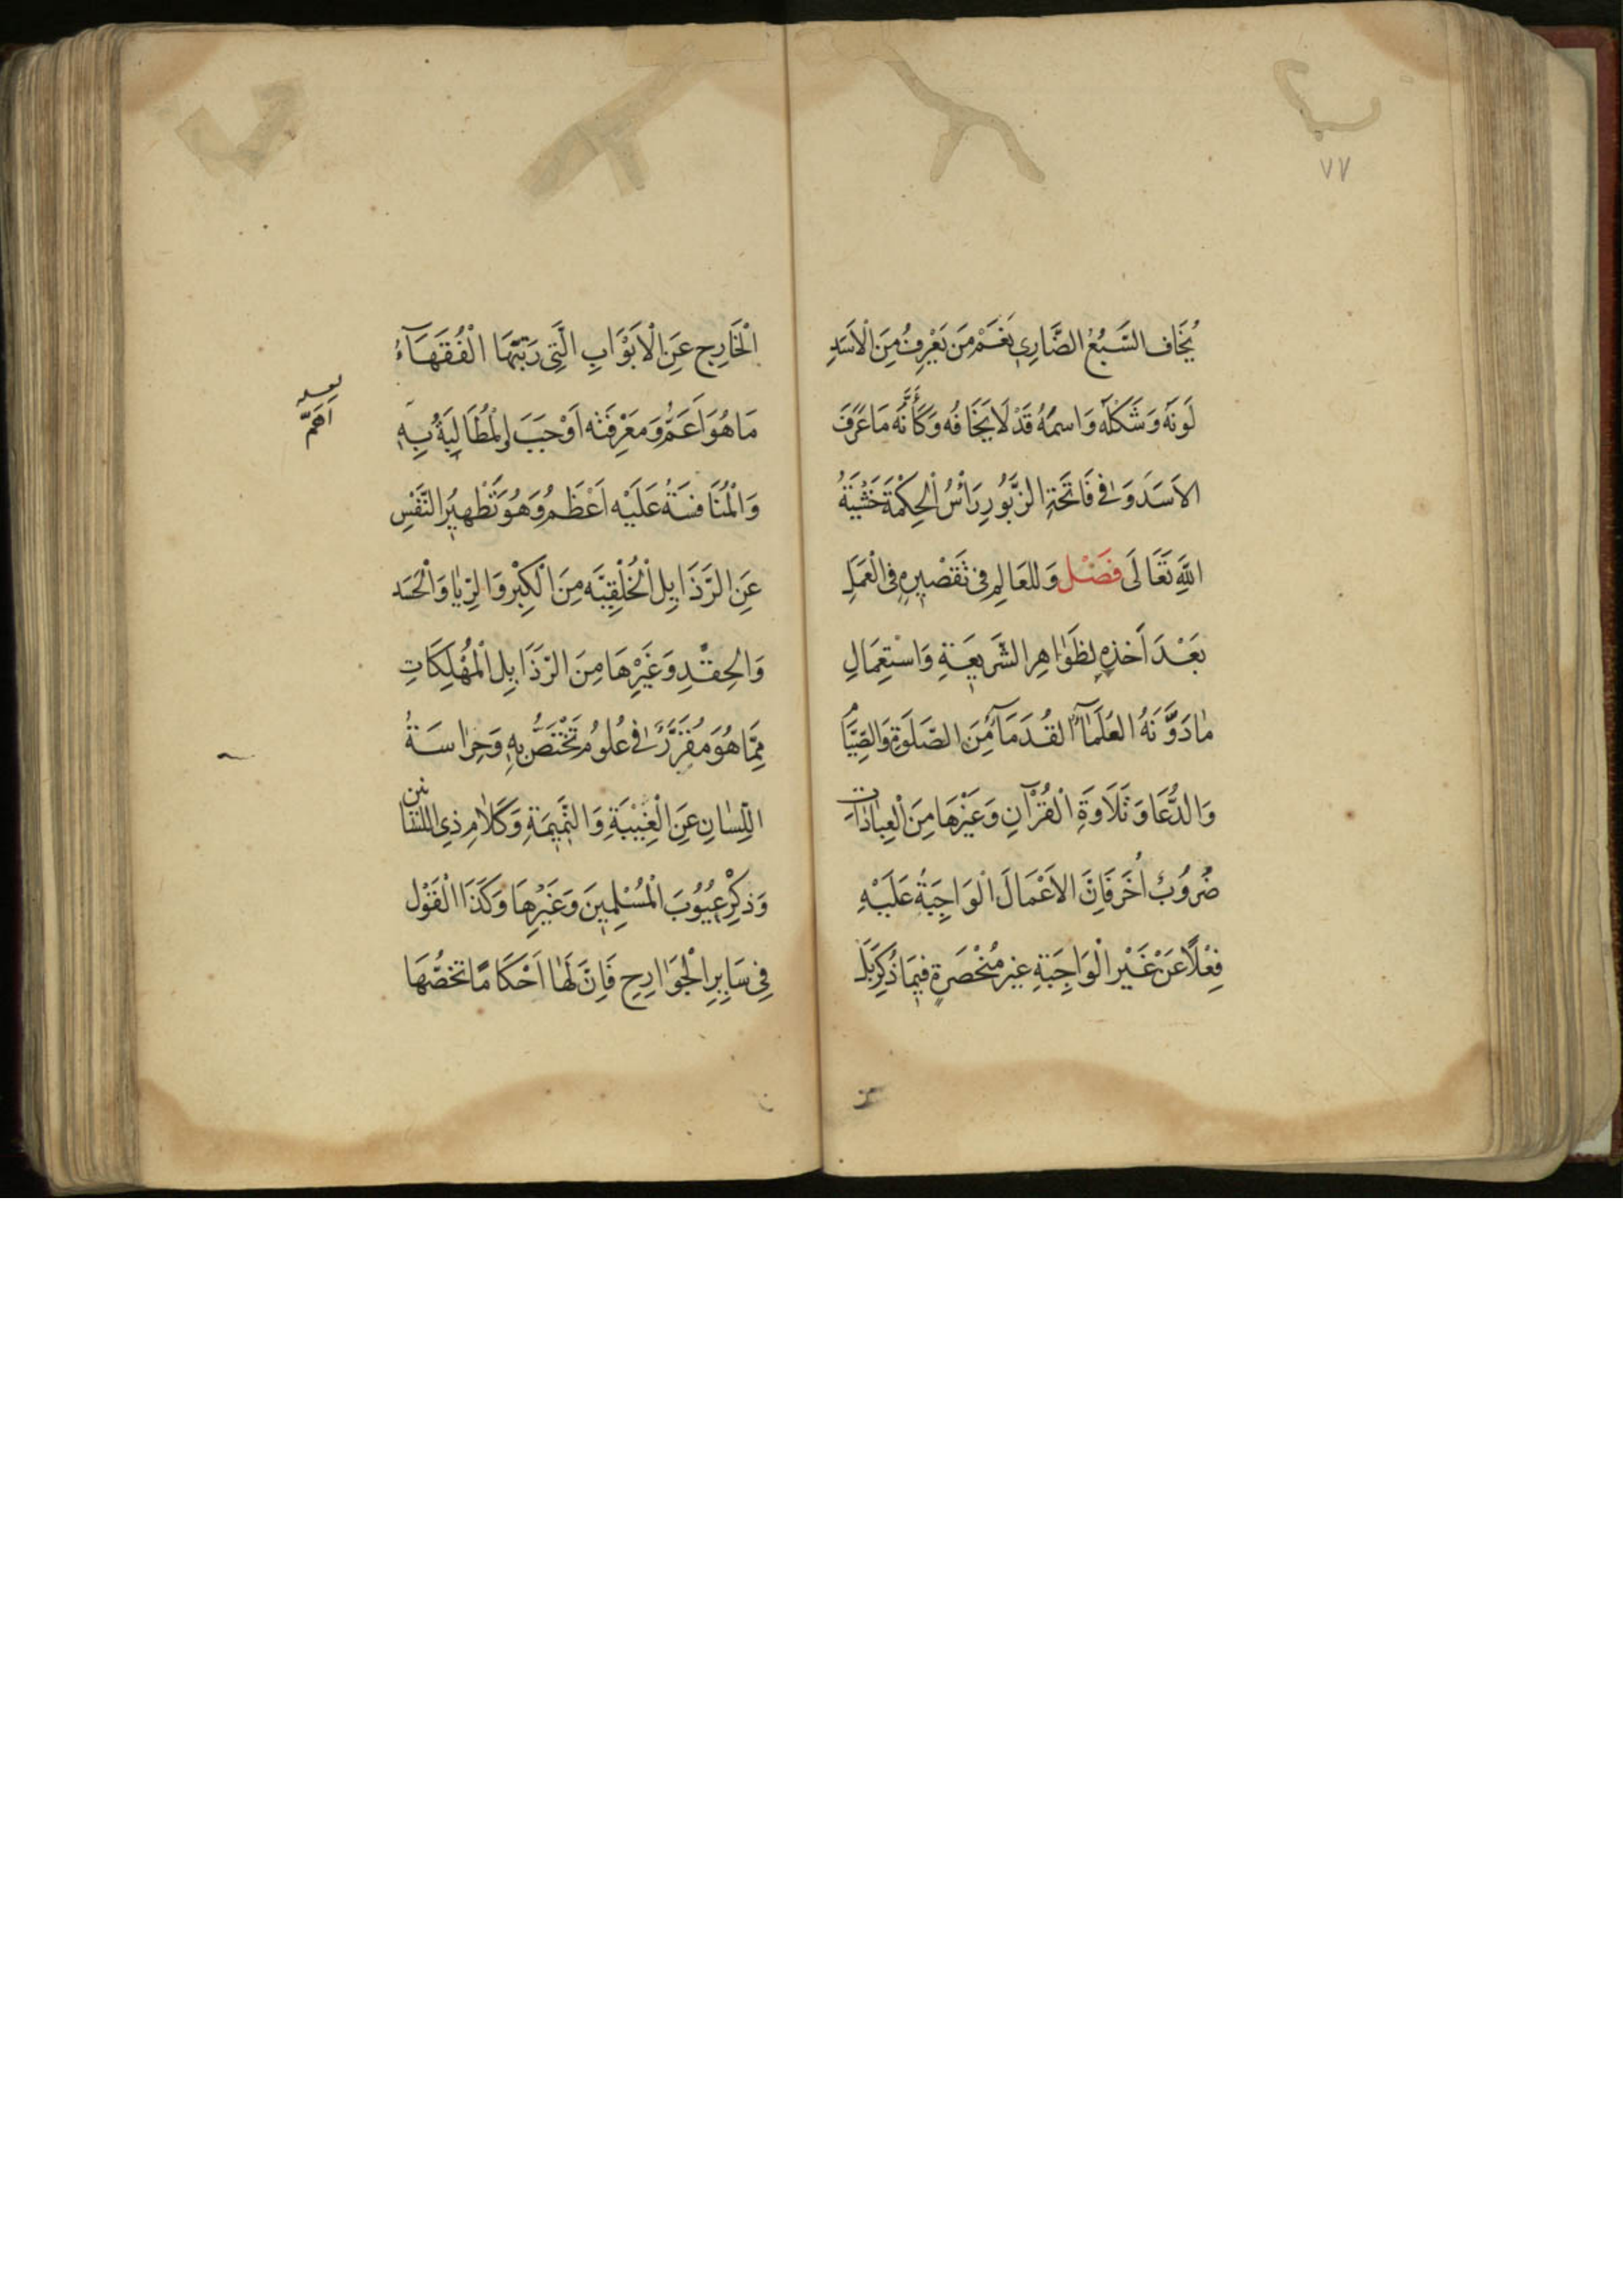 ٧٧
يُخَافُ السَّبُعُ الضَّارِي نَعَمْ مَن يَعْرِفُ مِنَ الْاَسَدِ
لَوْنَهُ وَشَكْلَهُ وَاسمَهُ قَدْ لَا يَخَافُه وَكَأَنَّه مَا عَرَفَ
الاَسَدَ وَفي فَاتِحَةِ الزَّبُورِ رَأْسُ الْحِكْمَةِ خَشْيَةُ
اللهِ تَعَالَى فَصْل وَللعَالِمِ فى تَقصْيرِهِ فى الْعَمَلِ
بَعْدَ اَخذِهِ بِظَوَاهِرِ الشَّرِيعَةِ وَاسْتِعِمَالِ
مٰا دَوَّنَهُ العُلَمَآءُ القُدَمَآءُ مِنَ الصَّلَوةِ وَالصِّيَامِ
وَالدُّعَا وَتَلَاوَةِ الْقُرْآنِ وَغَيْرِهَا مِنَ الْعِبَادٰاتِ
ضُرُوبٌ اُخَر فَاِنَّ الاَعْمَالَ الْوَاجِبَةَ عَلَيْهِ
فِعْلًا عَنْ غَيْرِ الْوَاجِبَةِ غير مُنْحَصَرةٍ فيمَا ذُكِرَ بَلْ
الْخَارِج عَنِ الْاَبْوَابِ الَّتِى رَتَّبَهَا الْفُقَهَآءُ
مَا هُوَ اَعَمُّ وَمَعْرِفَتُه اَوْجَبَ الْمُطَالِبَةُ بِهِ
اَهَمّ
وَالْمُنَافسَةُ عَلَيْه اَعْظَمُ وَهُوَ تَطْهيرُ النَّفْسِ
عَنِ الرَّذَايِلِ الْخُلْقِيَّه مِنَ الْكِبْرِ وَالرِّيٰا وَالْحَسَد
وَالحِقْدِ وَغَيْرِهَا مِنَ الرَّذَايِلِ الْمُهْلِكَاتِ
مِمَّا هُوَ مُقَرَّرٌ فى عُلُوم تَخْتَصُّ بِهِ وَحِرٰاسَةُ
اللِّسٰانِ عَنِ الْغِيْبَةِ وَالنَّمِيمَةِ وَكَلٰامِ ذِى اللسَّانَين
وَذِكْرِ عُيُوبَ الْمُسْلِمينَ وَغَيْرِهَا وَكَذَا الْقَوْل
فِى سَايِرِ الْجَوَارِحِ فَاِنَّ لَهٰا اَحْكَامًا تَخُصُّهَا